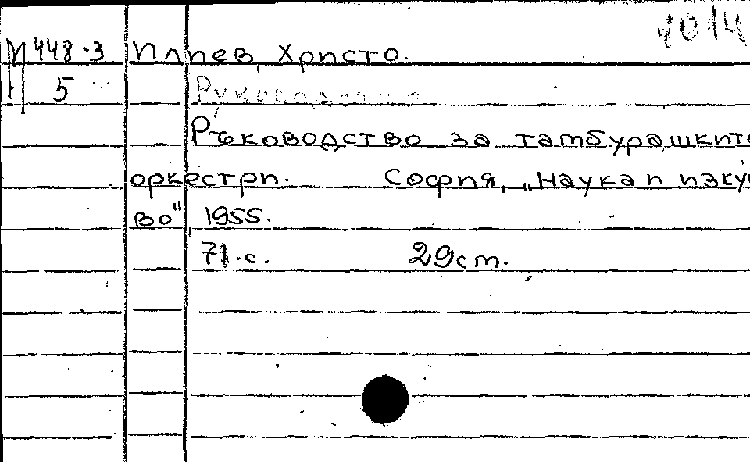 4014
448-3 Илиев, Христо.
5
Ръководство за тамбурашките
оркестри. София, „Наука и изку
во" 1955.
71.с. 29 cm.